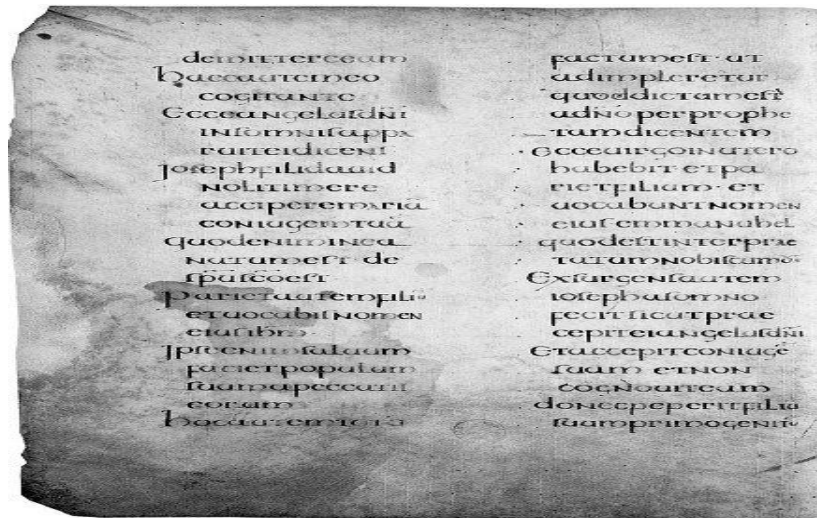 demitterceeam
haecautemeo
cogitante
Ecceangelusdn̄i
insomnisappa
ruiteidicens
Josephfilidauid
nolitimere
acciperemariā
coniugemtuā
quodeniminea
natumest de
sp̄usc̄oest
Parietautemfiliū
etuocabisnomen
eiusihm̄
Jpseenimsaluum
facietpopulum
suumapeccatis
eorum
hocautemtotū
factumest· ut
adimpleretur
quoddictumest
adn̄operprophe
tamdicentem
Ecceuirgoinutero
habebit· etpa
rietfilium· et
uocabuntnomen
eiusemmanuhel
quodestinterprae
tatumnobiscumds̄
Exsurgensautem
iosephasomno
fecitsicutprae
cepiteiangelusdn̄i
Etaccepitconiugē
suam etnon
cognouiteam
donecpeperitfiliū
suumprimogenitū